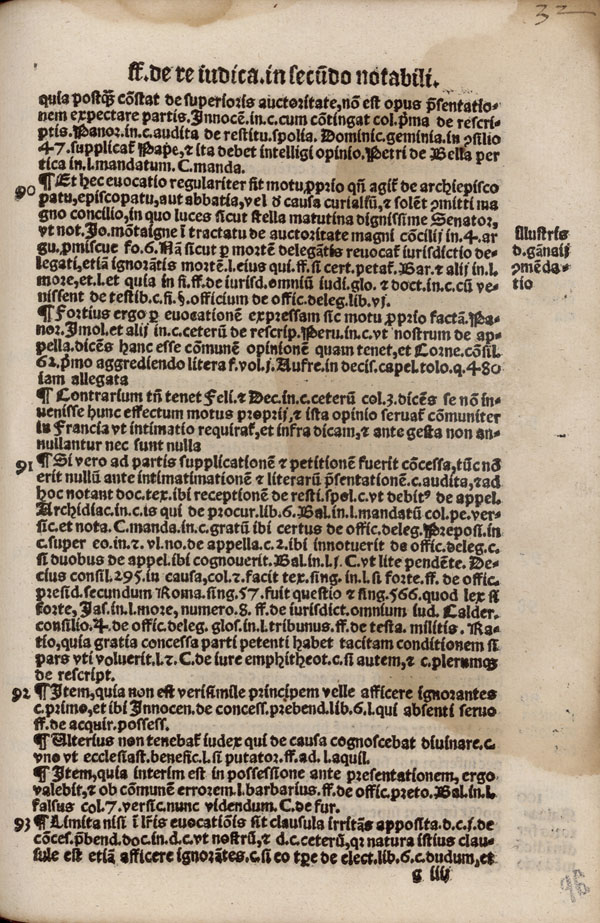 32
ff.de re iudica.in secūdo notabili.
quia postq̄ȝ cōstat de superioris auctoritate,nō est opus p̄sentatio-
nem expectare partis. Innocēn.in.c.cum cōtingat col.p̄ma de rescri-
ptis.Panor.in.c.audita de restitu.spolia. Dominic.geminia.in ꝯsilio
47.supplicaꝶ Pape,⁊ ita debet intelligi opinio.Petri de Bella per
tica in.l.mandatum. C.manda.
90 ¶ Et hec euocatio regulariter fit motu ꝓprio qn̄ agiꝶ de archiepisco
patu,episcopatu,aut abbatia,vel ð causa curialiū,⁊ solēt ꝯmitti ma
gno concilio,in quo luces sicut stella matutina dignissime Senator,
vt not.Jo.mōtaigne ī tractatu de auctoritate magni cōcilij in.4.ar
gu.ꝓmiscue fo.6.Nā sicut ꝑ mortē delegātis reuocaꝶ iurisdictio de-
legati,etiā ignorātis mortē.l.eius qui.ff.si cert.petaꝶ.Bar.⁊ alij in.l.
more,et.l.et quia in fi.ff.de iurisd.omniū iudi.glo.⁊ doct.in.c.cū ve-
nissent de testib.c.fi.§.officium de offic.deleg.lib.vj.
Illustris
d.gānaij
ꝯmēda-
tio
¶ Fortius ergo ꝑ euocationē expressam sic motu ꝓprio factā.Pa-
nor.Imol.et alij in.c.ceterū de rescrip.Peru.in.c.vt nostrum de ap-
pella.dicēs hanc esse cōmunē opinionē quam tenet,et Corne.cōsil.
62.p̄mo aggrediendo litera f.vol.j.Aufre.in decis.capel.tolo.q.480
iam allegata
¶ Contrarium tn̄ tenet Feli.⁊ Dec.in.c.ceterū col.3.dicēs se nō in-
uenisse hunc effectum motus proprij,⁊ ista opinio seruaꝶ cōmuniter
in Francia vt intimatio requiraꝶ,et infra dicam,⁊ ante gesta non an-
nullantur nec sunt nulla
91 ¶ Si vero ad partis supplicationē ⁊ petitionē fuerit cōcessa,tūc nō
erit nullū ante intimatimationē ⁊ literarū p̄sentationē.c.audita,⁊ad
hoc notant doc.tex.ibi receptionē de resti.spol.c.vt debitꝰ de appel.
Archidiac.in.c.is qui de procur.lib.6.Bal.in.l.mandatū col.pe.ver-
sic.et nota.C.manda.in.c.gratū ibi certus de offic.deleg.Preposi.in
c.super eo.in.⁊.vl.no.de appella.c.2.ibi innotuerit de offic.deleg.c.
si duobus de appel.ibi cognouerit.Bal.in.l.j.C.vt lite pendēte. De-
cius consil.295.in causa,col.⁊.facit tex.sing.in.l.si forte.ff.de offic.
presid.secundum Roma.sing.57.fuit questio ⁊ sing.566.quod lex si
forte, Jas.in.l.more, numero.8.ff.de iurisdict.omnium iud. Calder.
consilio.4.de offic.deleg.glos.in.l.tribunus.ff.de testa. militis. Ra-
tio,quia gratia concessa parti petenti habet tacitam conditionem si
pars vti voluerit.l.⁊.C.de iure emphitheot.c.si autem,⁊ c.plerumqȝ
de rescript.
92 ¶ Item,quia non est verisimile principem velle afficere ignorantes
c.primo,et ibi Innocen.de concess.prebend.lib.6.l.qui absenti seruo
ff.de acquir.possess.
¶ Ulterius non tenebaꝶ iudex qui de causa cognoscebat diuinare.c.
vno vt ecclesiast.benefic.l.si putator.ff.ad.l.aquil.
¶ Item,quia interim est in possessione ante presentationem, ergo
valebit,⁊ ob cōmunē errorem.l.barbarius.ff.de offic.preto. Bal.in.l.
falsus col.7.versic.nunc videndum.C.de fur.
93 ¶ Limita nisi ī lr̄is euocationis sit clausula irritās apposita.d.c.j.de
cōces.p̄bend.doc.in.d.c.vt nostrū,⁊ d.c.ceterū,qꝛ natura istius clau-
sule est etiā afficere ignorātes.c.si eo tp̄re de elect.lib.6.c.dudum,et
g iiij
96